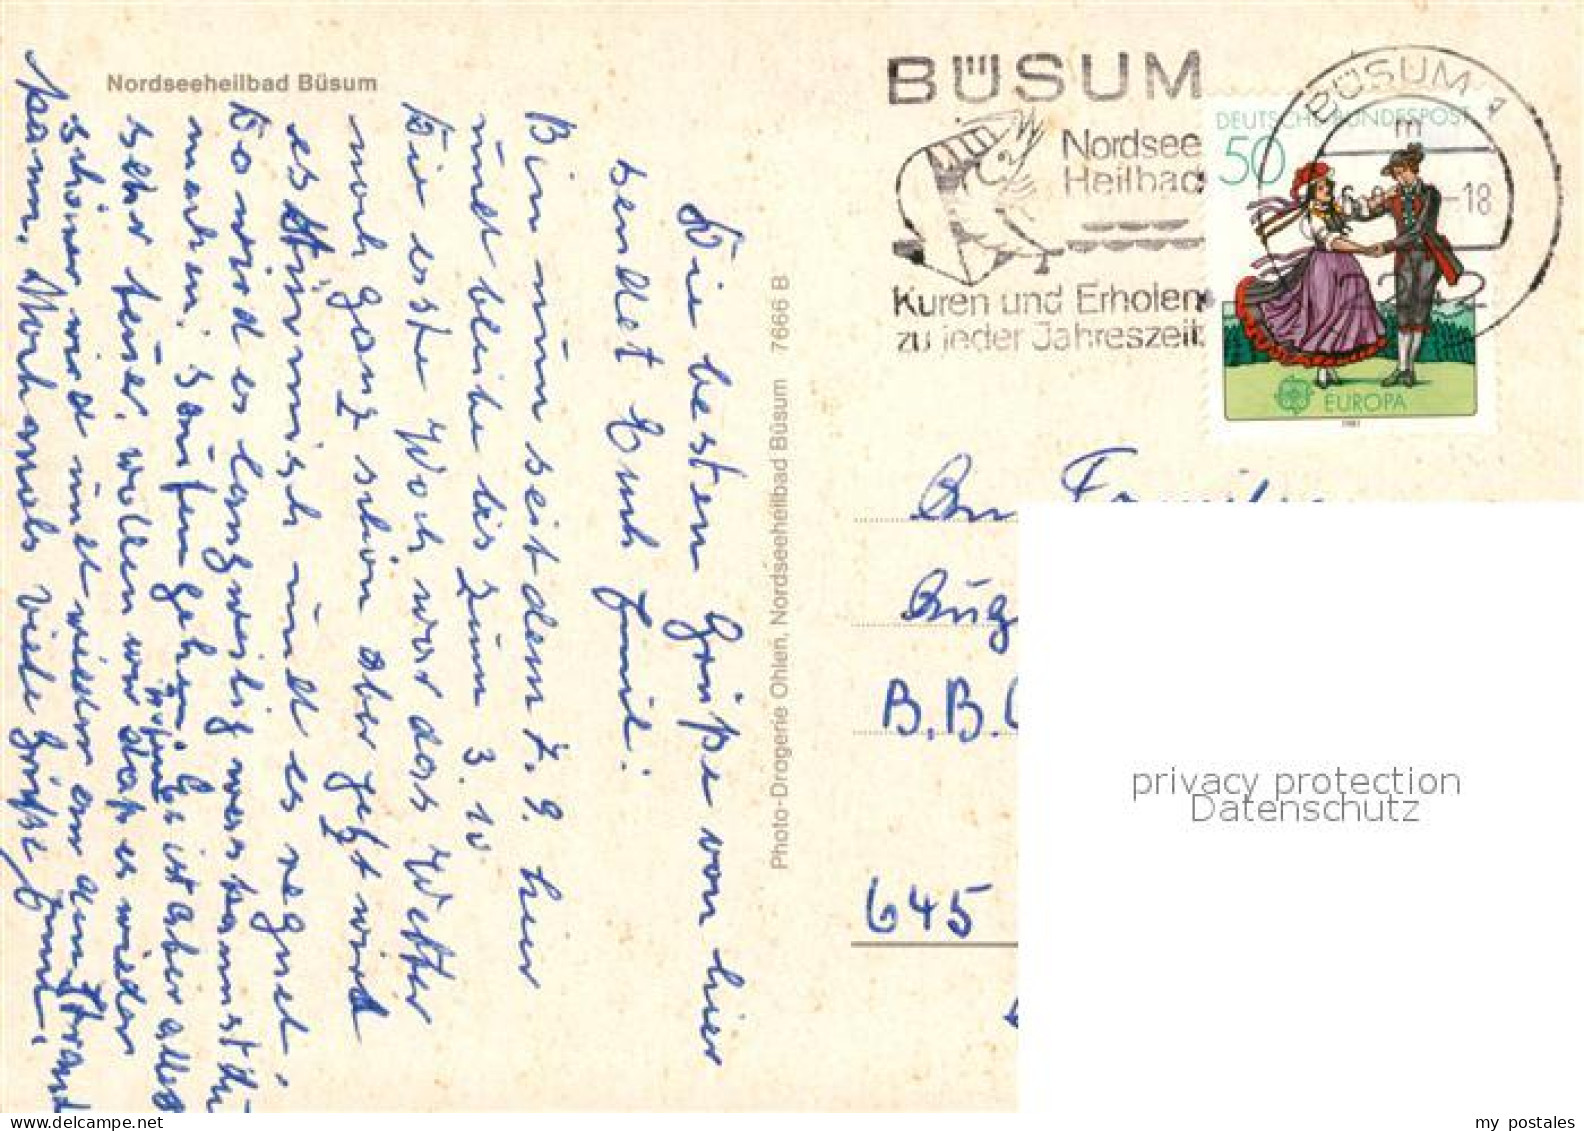 Nordseeheilbad Büsum
BÜSUM
Nordsee
Heilbad
Kuren und Erholen
zu jeder Jahreszeit
BÜSUM 1
m
-18
DEUTSCHE BUNDESPOST
50
EUROPA
1981
Die besten Grüße von hier
sendet Euch
Bin nun seit dem 7. 9. hier
und bleibe bis zum 3. 10
Die erste Woch war das Wetter
noch ganz schön aber jetzt wird
es stürmisch und es regnet.
So wird es langweilig was kannst du
machen, saufen gehen. Es ist aber alles
sehr teuer, wollen wir hoffen das es wieder
schöner wird und wieder am Strand
kann. Nochmals viele Grüße
Photo-Drogerie Ohlen, Nordseeheilbad Büsum 7666 B
An Familie
Aug
B.B.
645
privacy protection
Datenschutz
my postales